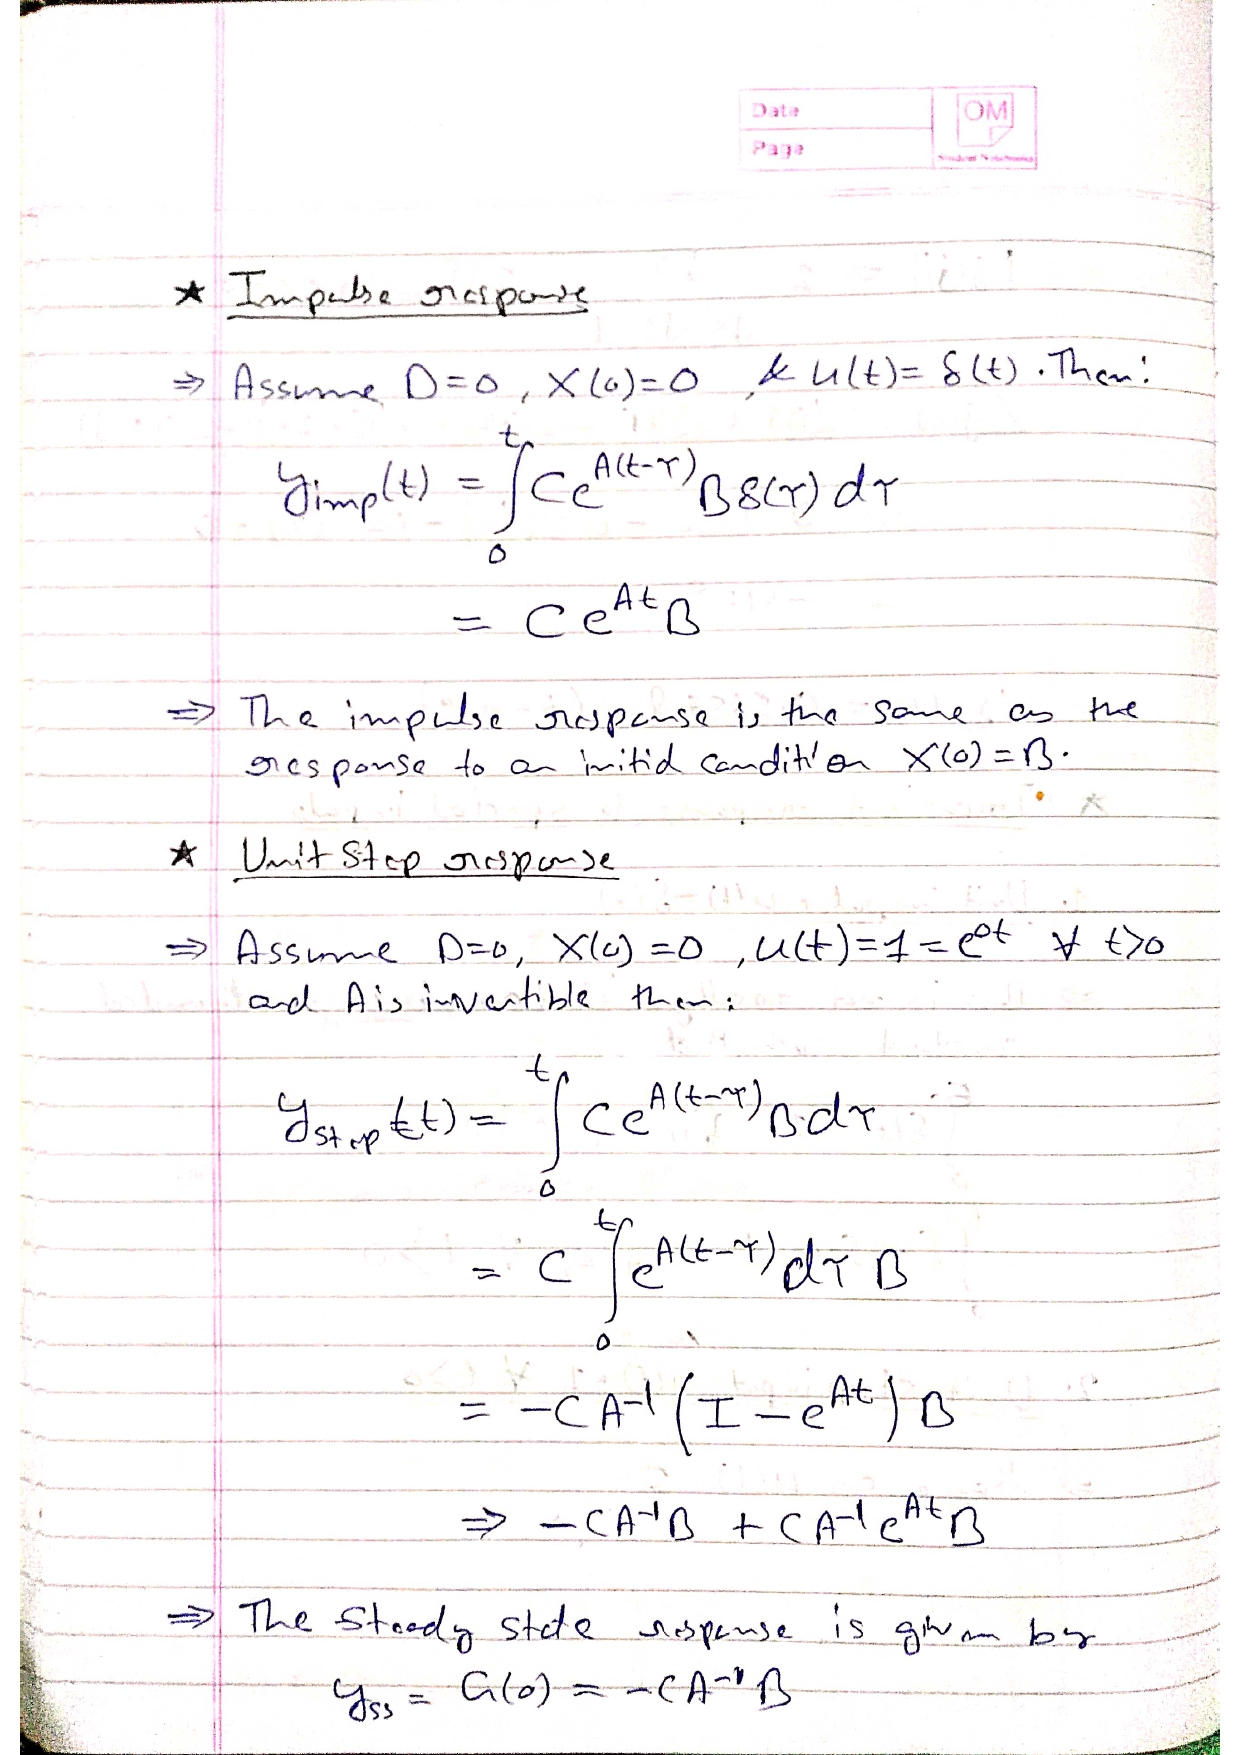 Date
Page
OM
Student Notebooks
★ Impulse response
⇒ Assume D=0, X(0)=0 & u(t)= δ(t). Then:
y_imp(t) = ∫₀ᵗ C e^{A(t-τ)} B δ(τ) dτ
= C e^{At} B
⇒ The impulse response is the same as the
response to an initial condition X(0) = B.
★ Unit Step response
⇒ Assume D=0, X(0) =0 , u(t)=1 = e^{0t} ∀ t>0
and A is invertible then:
y_step(t) = ∫₀ᵗ C e^{A(t-τ)} B dτ
= C ∫₀ᵗ e^{A(t-τ)} dτ B
= -C A⁻¹ (I - e^{At}) B
⇒ -C A⁻¹ B + C A⁻¹ e^{At} B
⇒ The Steady state response is given by
y_ss = G(0) = -C A⁻¹ B